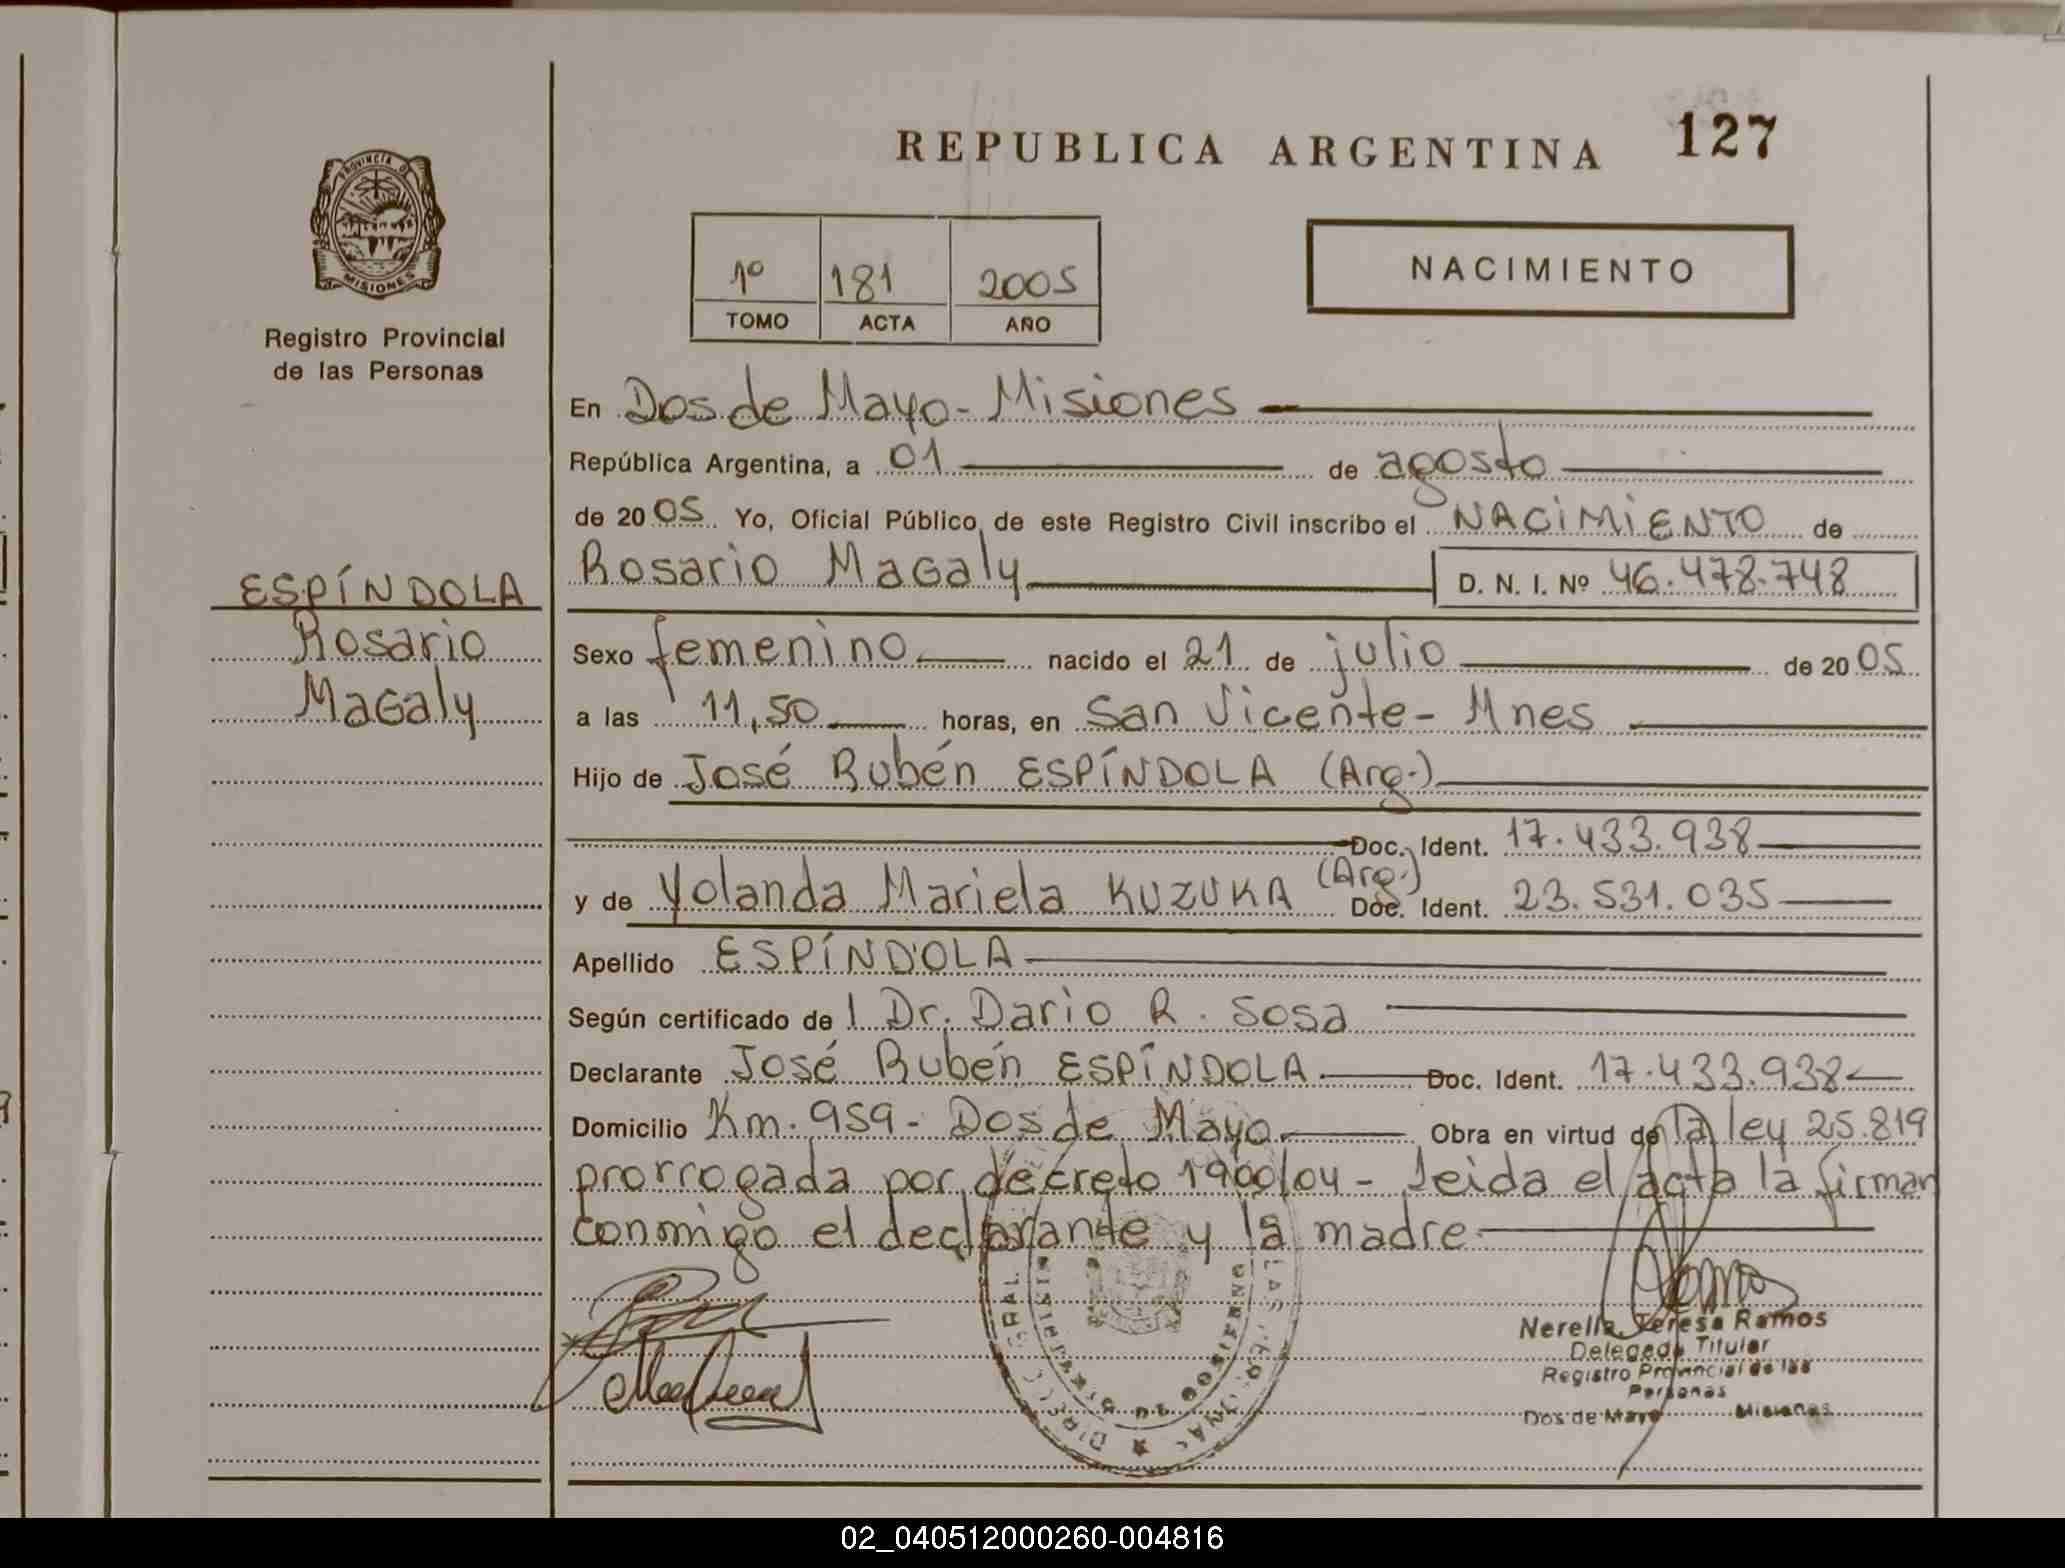 REPUBLICA ARGENTINA 127
PROVINCIA DE
MISIONES
Registro Provincial
de las Personas
1º 181 2005
TOMO ACTA AÑO
NACIMIENTO
En Dos de Mayo - Misiones
República Argentina, a 01 de agosto
de 2005 Yo, Oficial Público de este Registro Civil inscribo el NACIMIENTO de
Rosario Magaly D. N. I. Nº 46.478.748
ESPÍNDOLA
Rosario
Magaly
Sexo femenino nacido el 21 de julio de 2005
a las 11,50 horas, en San Vicente - Mnes
Hijo de José Rubén ESPÍNDOLA (Arg.)
Doc. Ident. 17.433.938
y de Yolanda Mariela KUZUKA (Arg.) Doc. Ident. 23.531.035
Apellido ESPÍNDOLA
Según certificado de l Dr. Dario R. Sosa
Declarante José Rubén ESPÍNDOLA Doc. Ident. 17.433.938
Domicilio Km. 959 - Dos de Mayo Obra en virtud de la ley 25.819
prorrogada por decreto 1900/04 - Leida el acta la firman
conmigo el declarante y la madre
Nerella Teresa Ramos
Delegada Titular
Registro Provincial de las
Personas
Dos de Mayo Misiones
02_040512000260-004816